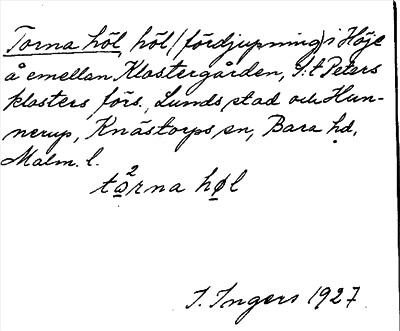 Torna höl, höl (fördjupning) i Höje
å emellan Klostergården, S:t Peters
klosters förs., Lunds stad och Hun-
nerup, Knästorps sn, Bara hd,
Malm. l.
tɷ²rna høl
I. Ingers 1927.